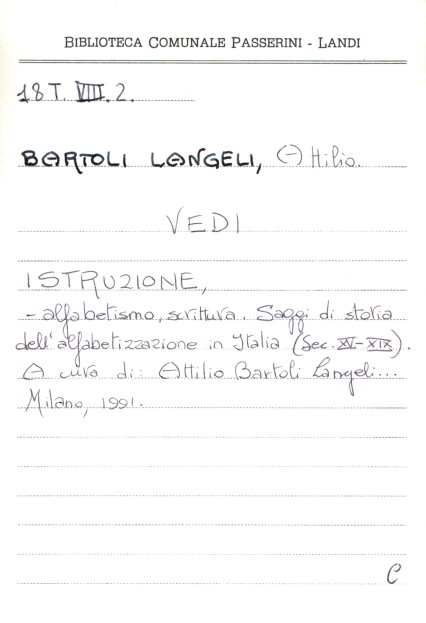 BIBLIOTECA COMUNALE PASSERINI - LANDI
18 T. VIII. 2.
BARTOLI LANGELI, Attilio.
VEDI
ISTRUZIONE,
- alfabetismo, scrittura. Saggi di storia
dell'alfabetizzazione in Italia (Sec. XV-XIX).
A cura di: Attilio Bartoli Langeli...
Milano, 1991.
C